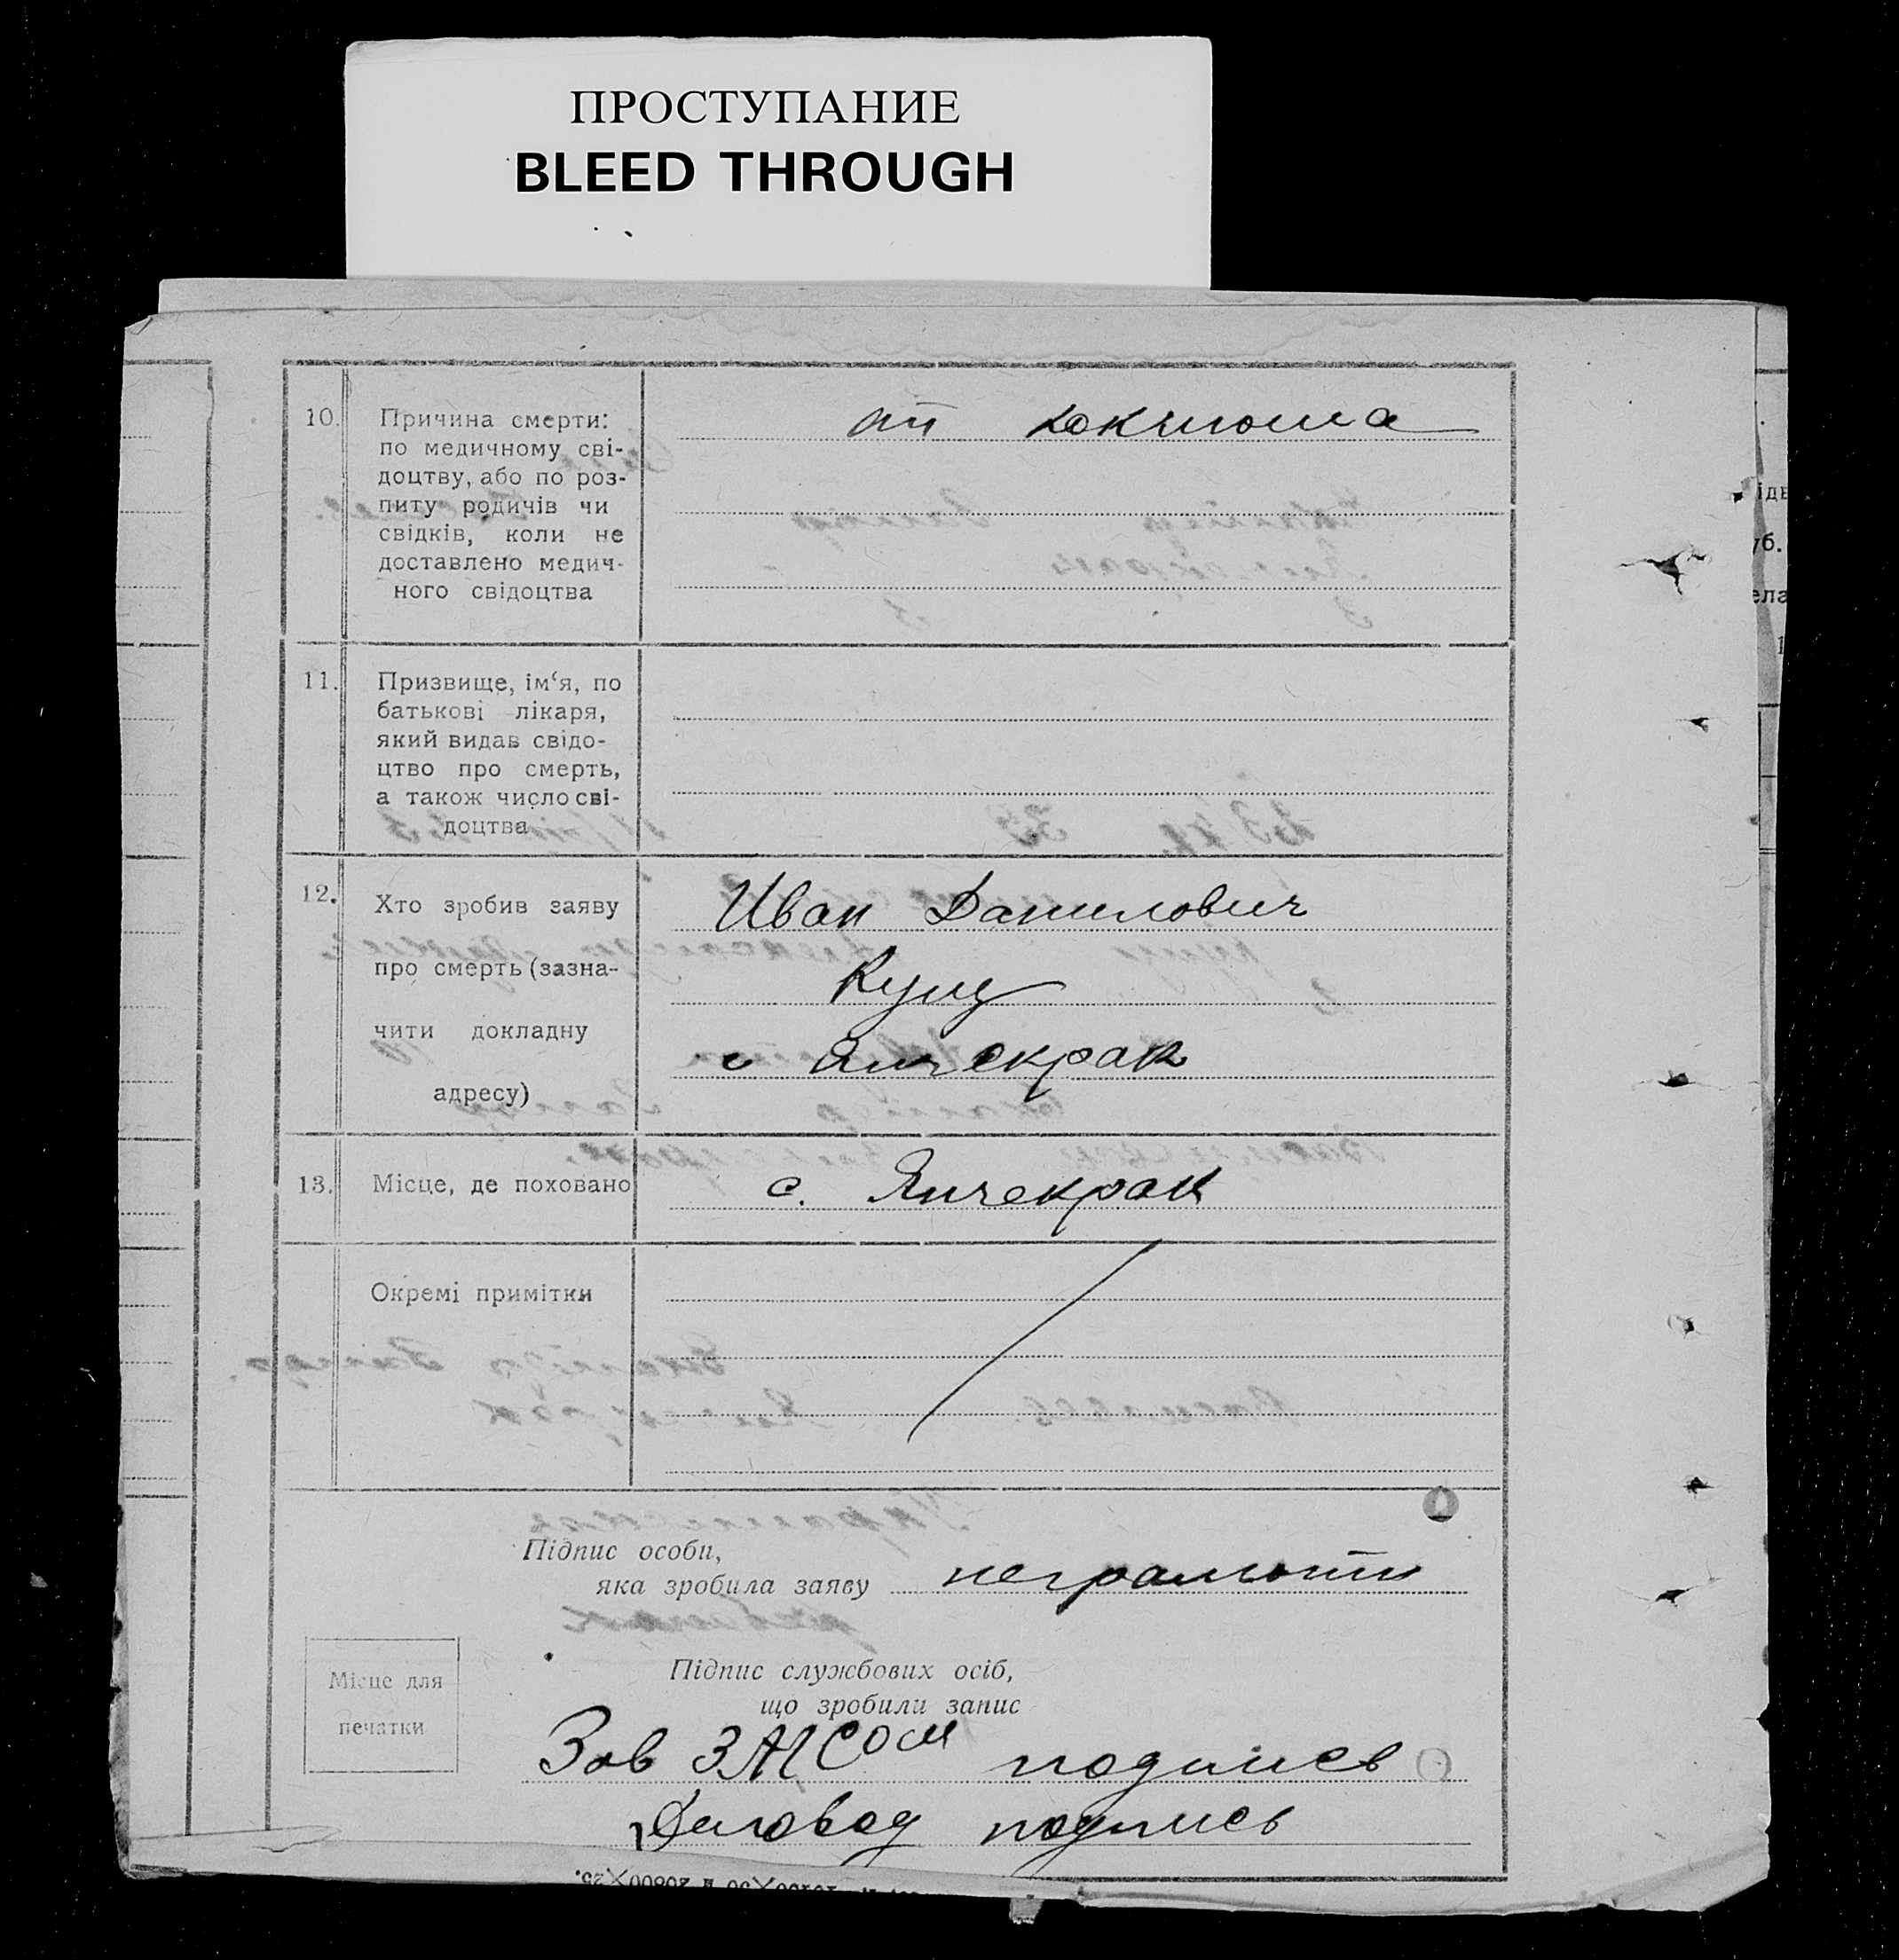 ПРОСТУПАНИЕ
BLEED THROUGH
10. Причина смерти:
по медичному сві-
доцтву, або по роз-
питу родичів чи
свідків, коли не
доставлено медич-
ного свідоцтва
от коклюша
11. Призвище, ім‘я, по
батькові лікаря,
який видав свідо-
цтво про смерть,
а також число сві-
доцтва
12. Хто зробив заяву
про смерть (зазна-
чити докладну
адресу)
Иван Данилович
Кущ
с Янчекрак
13. Місце, де поховано
с. Янчекрак
Окремі примітки
Підпис особи,
яка зробила заяву неграмотн
Місце для
печатки
Підпис службових осіб,
що зробили запис
Зав ЗАГСом подпись
Деловод подпись
ідв
уб.
ела